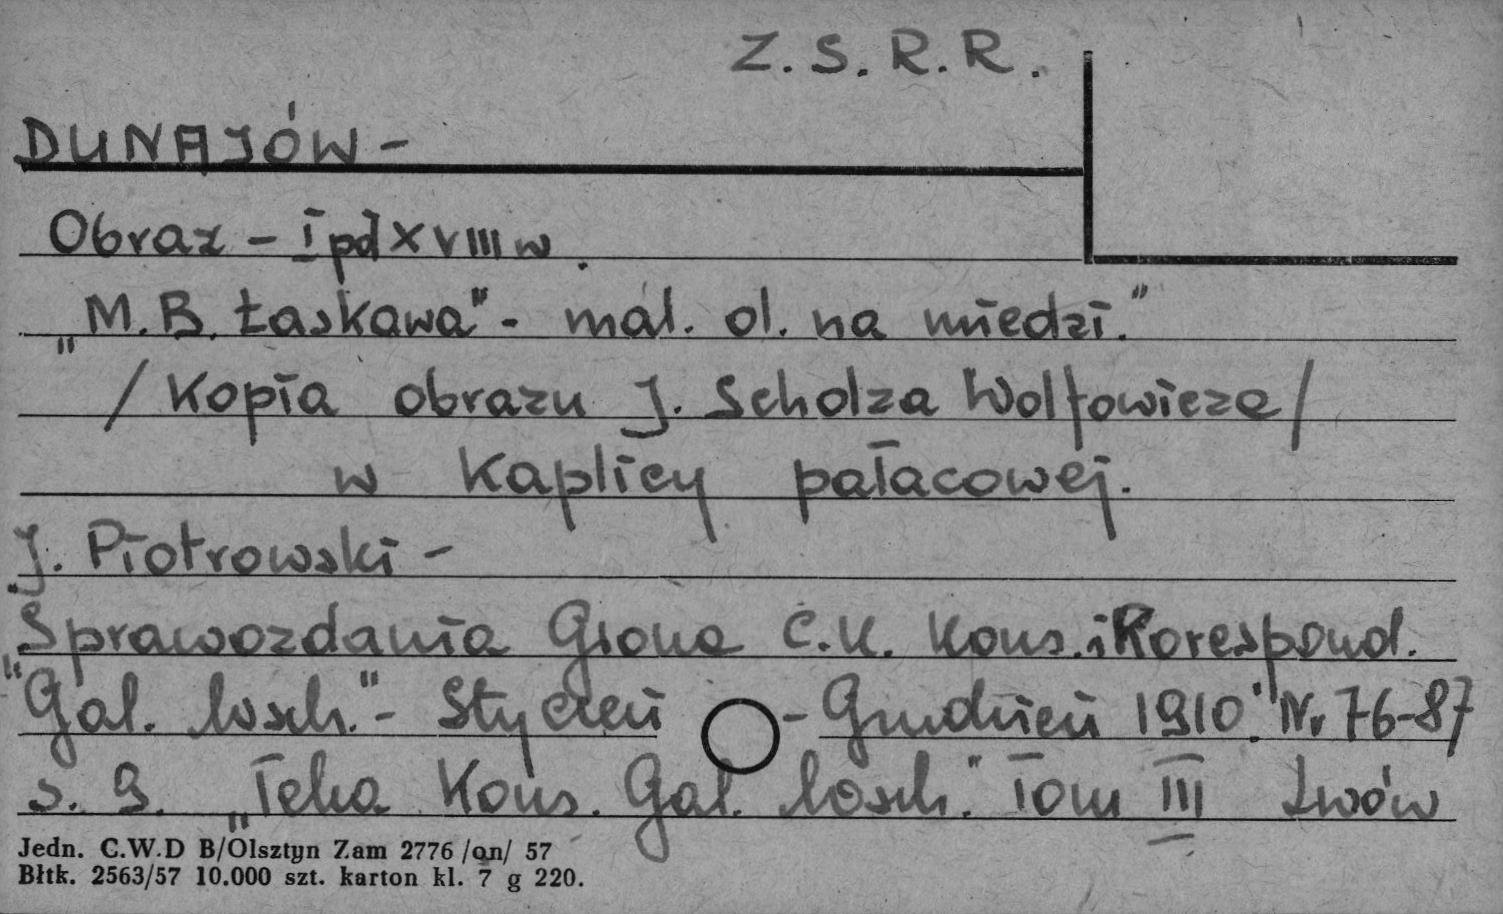 Z.S.R.R.
DUNAJÓW -
Obraz - I pd XVIII w.
"M.B. Łaskawa" - mal. ol. na miedzi."
/Kopia obrazu J. Scholza Wolfowicza/
w kaplicy pałacowej.
J. Piotrowski -
"Sprawozdania Grona C.K. Kons. i Korespond.
Gal. wsch." - Styczeń - Grudzień 1910." Nr 76-87
s. 9. "Teka Kons. Gal. wsch." Tom III Lwów
Jedn. C.W.D B/Olsztyn Zam 2776 /on/ 57
Błtk. 2563/57 10.000 szt. karton kl. 7 g 220.